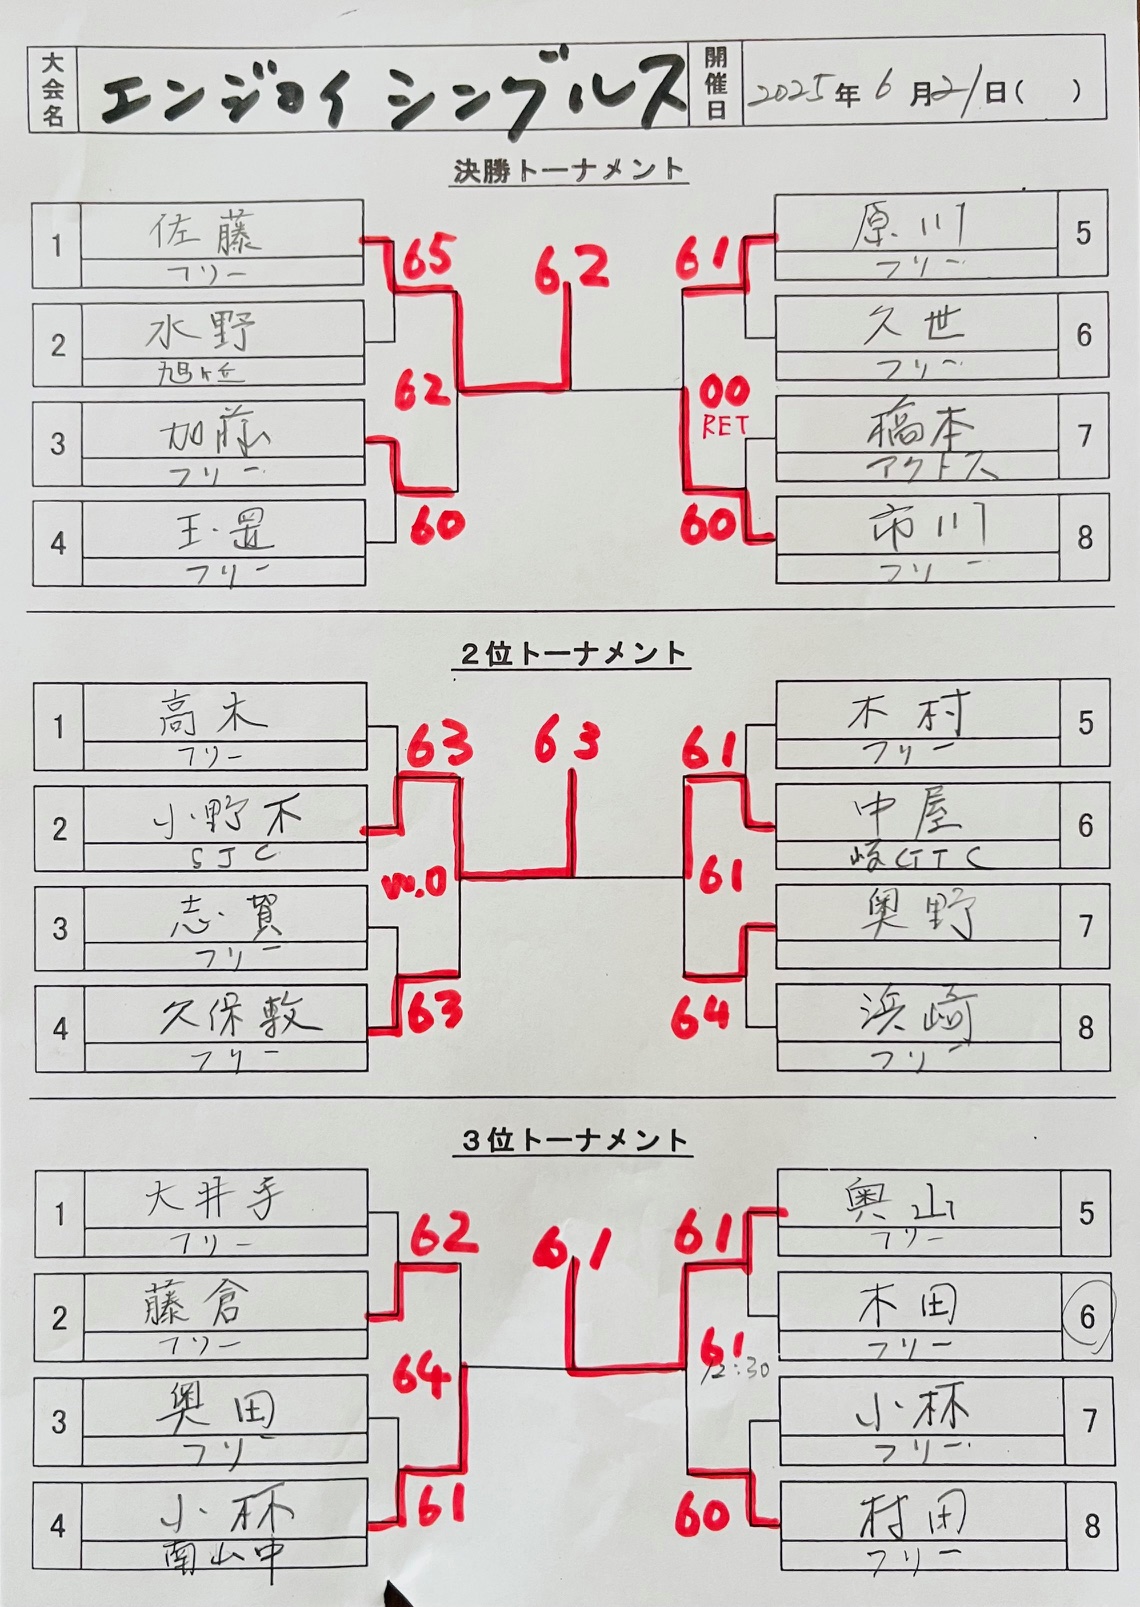 大会名 エンジョイ シングルス 開催日 2025年 6月21日( )
決勝トーナメント
1 佐藤 フリー
2 水野 旭ヶ丘
3 加藤 フリー
4 玉置 フリー
65
62
62
60
61
00
RET
60
原川 フリー 5
久世 フリー 6
橋本 アクトス 7
市川 フリー 8
2位トーナメント
1 高木 フリー
2 小野木 SJC
3 志賀 フリー
4 久保敷 フリー
63
63
w.0
63
61
61
64
木村 フリー 5
中屋 岐GTC 6
奥野 7
浜崎 フリー 8
3位トーナメント
1 大井手 フリー
2 藤倉 フリー
3 奥田 フリー
4 小林 南山中
62
61
64
61
61
61
12:30
60
奥山 フリー 5
木田 フリー 6
小林 フリー 7
村田 フリー 8